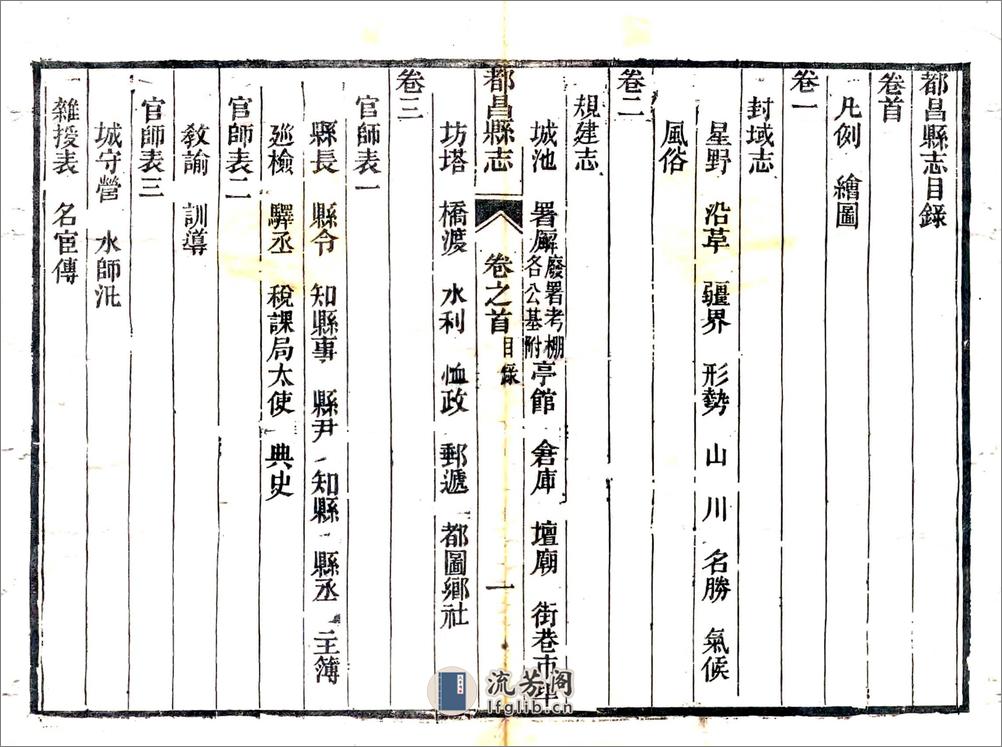 都昌縣志目錄
卷首
凡例 繪圖
卷一
封域志
星野 沿革 疆界 形勢 山川 名勝 氣候
風俗
卷二
規建志
城池 署廨 廢署考棚各公基附 亭館 倉庫 壇廟 街巷市
都昌縣志 卷之首 目錄 一
坊塔 橋渡 水利 恤政 郵遞 都圖鄉社
卷三
官師表一
縣長 縣令 知縣事 縣尹 知縣 縣丞 主簿
廵檢 驛丞 稅課局大使 典史
官師表二
教諭 訓導
官師表三
城守營 水師汛
雜授表 名宦傳
流芳阁
lfglib.cn